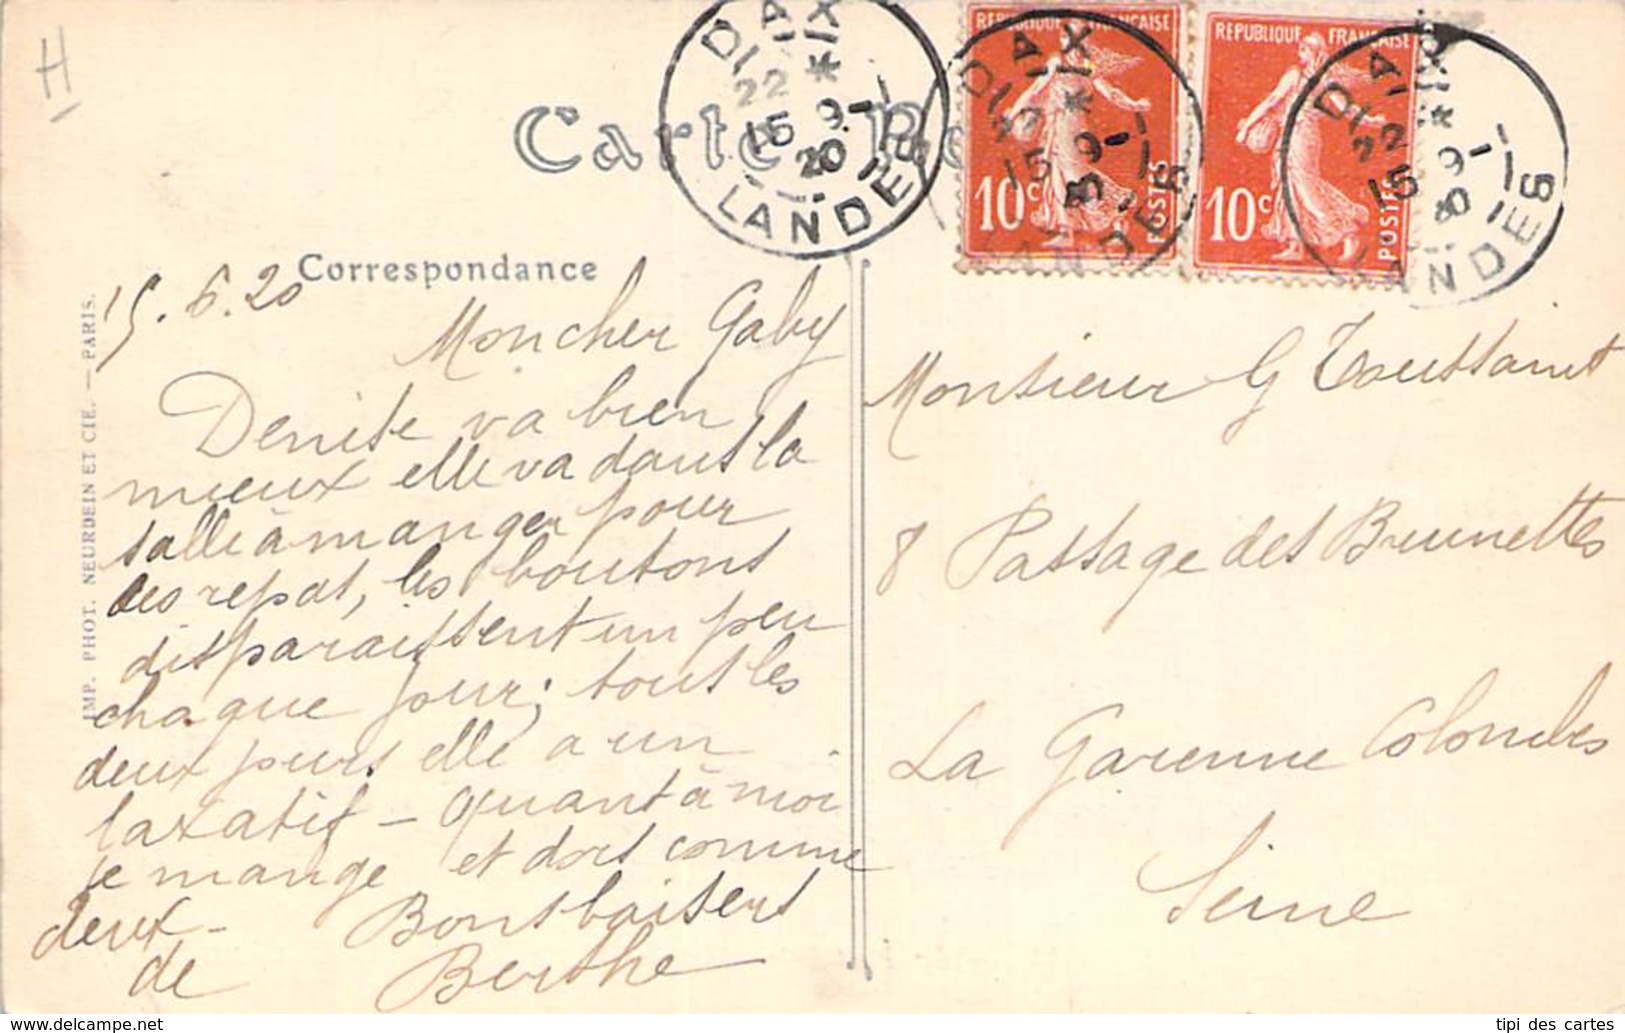 H
DAX
22 * 15 9 20
LANDES
REPUBLIQUE FRANÇAISE
10c POSTES
DAX
22 * 15 9
LANDES
REPUBLIQUE FRANÇAISE
10c POSTES
DAX
22 * 15 9
LANDES
Carte
Correspondance
IMP. PHOT. NEURDEIN ET CIE. — PARIS.
15.6.20
Mon cher Gaby
Denise va bien
mieux elle va dans la
salle à manger pour
les repas, les boutons
disparaissent un peu
chaque jour; tous les
deux jours elle a un
laxatif — Quant à moi
je mange et dors comme
deux — Bons baisers
de Berthe
Monsieur G Toussaint
8 Passage des Brunettes
La Garenne Colombes
Seine
tipi des cartes